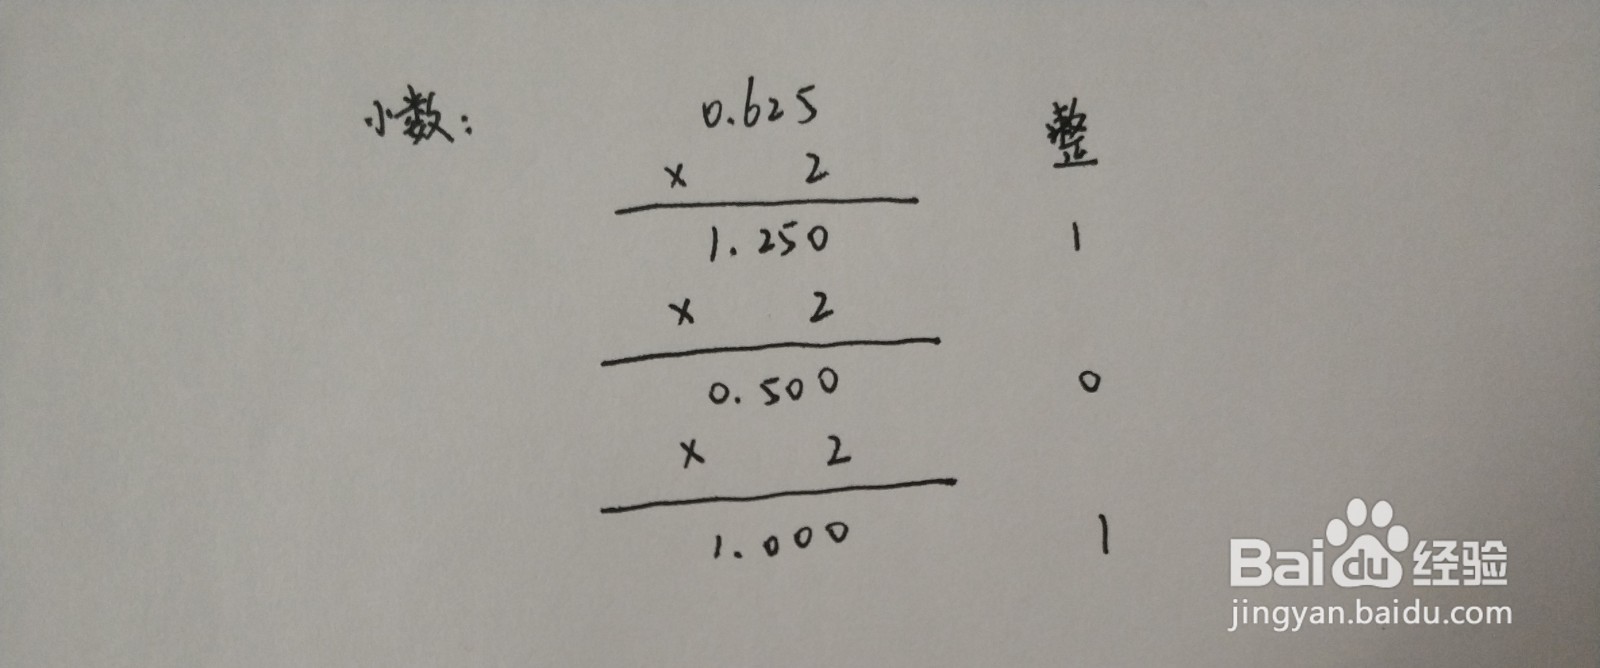 小数： 0.625 整
× 2
1.250 1
× 2
0.500 0
× 2
1.000 1
Baidu经验
jingyan.baidu.com